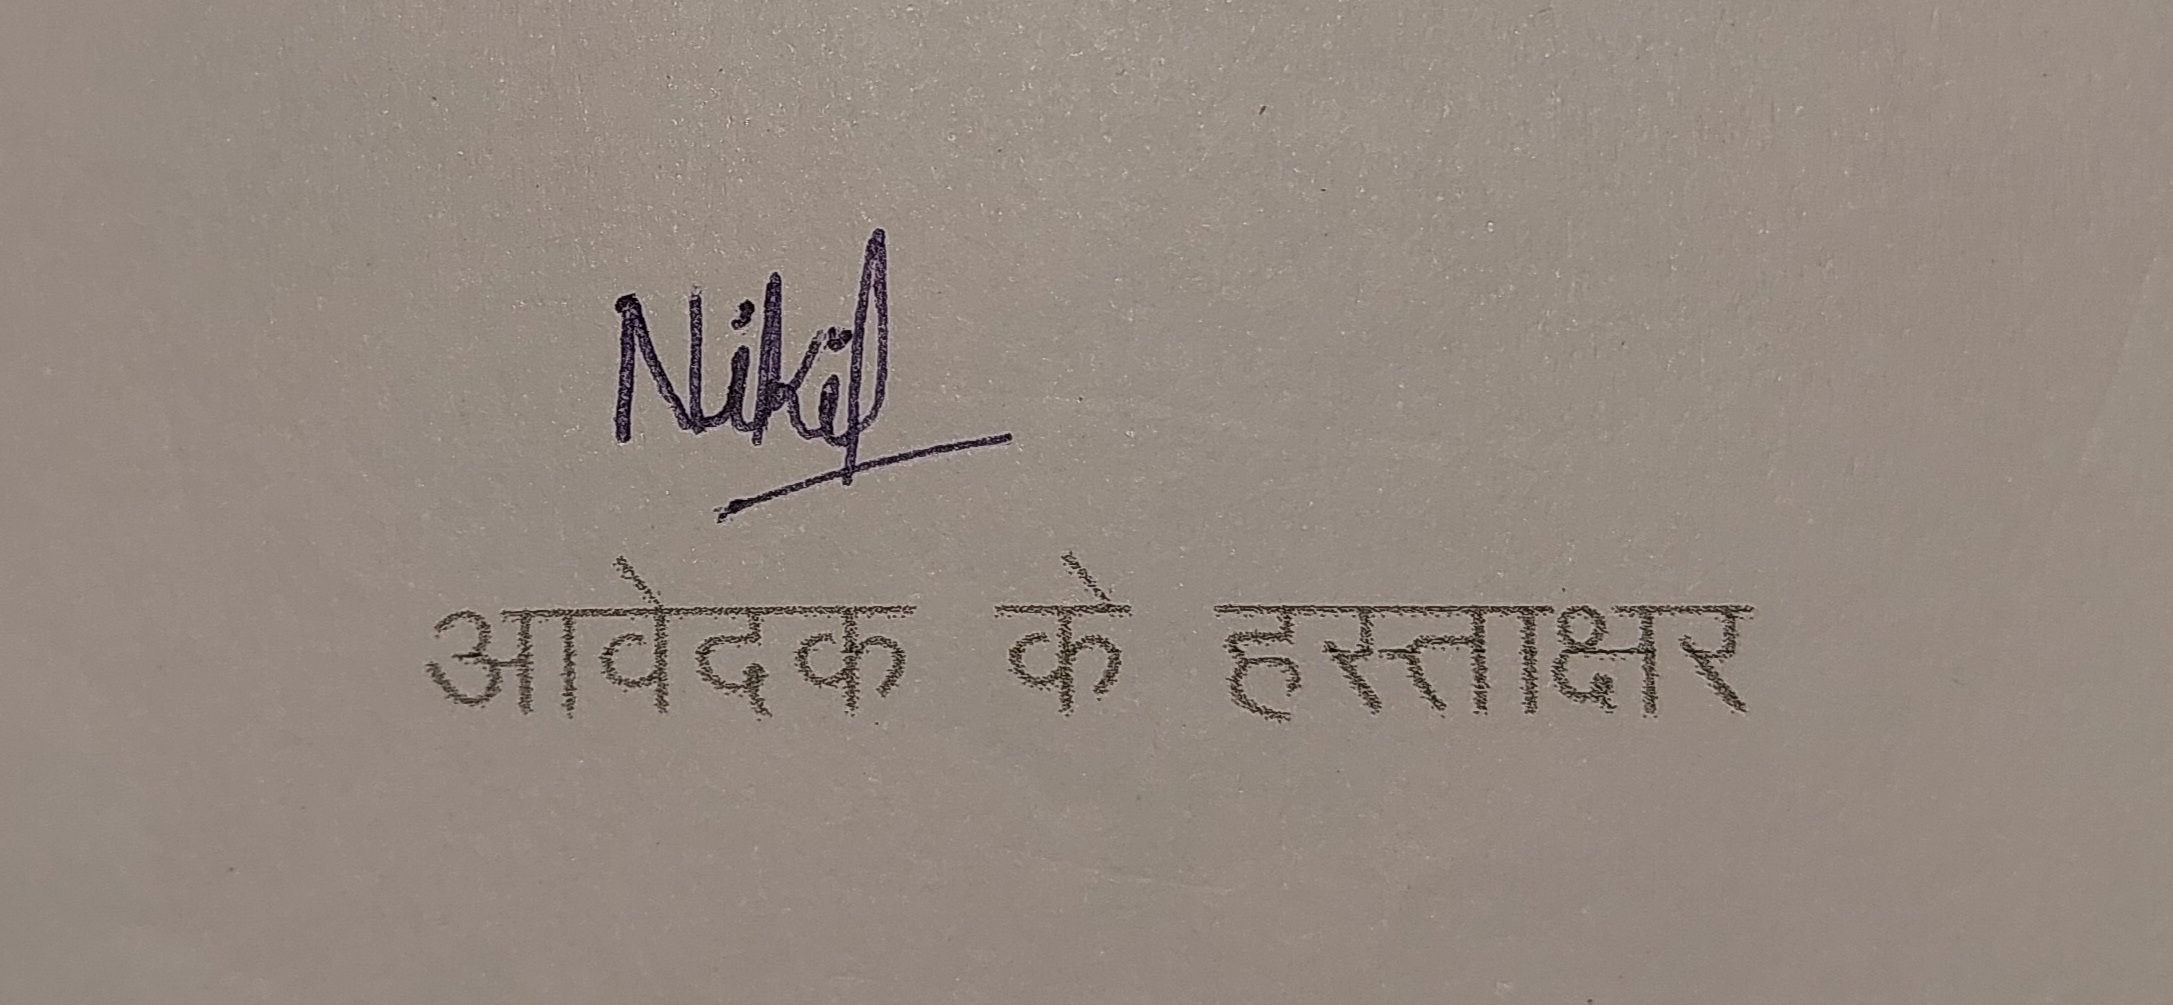 Nikil
आवेदक के हस्ताक्षर